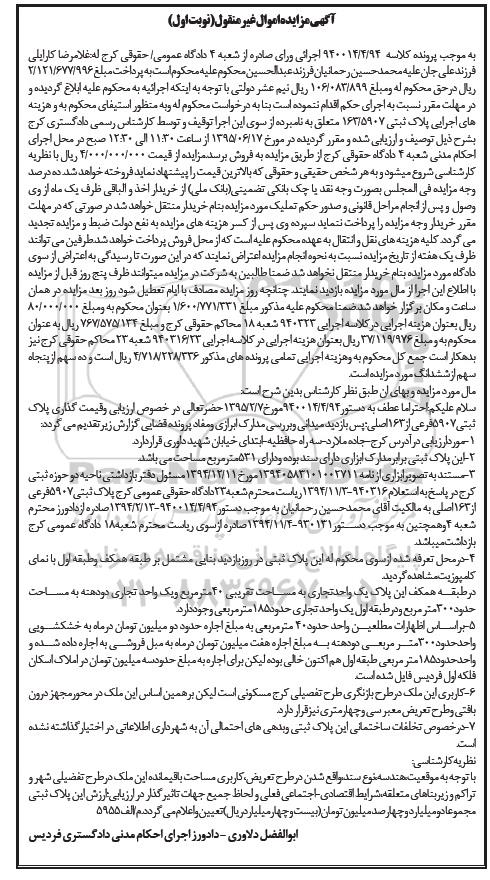 آگهی مزایده اموال غیر منقول (نوبت اول)
به موجب پرونده کلاسه ۹۴۰۰۱۴/۴/۹۴ اجرائی ورای صادره از شعبه ۴ دادگاه عمومی/ حقوقی کرج له: غلامرضا کارایلی
فرزند علی جان علیه محمدحسین رحمانیان فرزند عبدالحسین محکوم علیه محکوم است به پرداخت مبلغ ۲/۱۲۱/۶۷۷/۹۹۶
ریال در حق محکوم له ومبلغ ۱۰۶/۰۸۳/۸۹۹ ریال نیم عشر دولتی با توجه به اینکه اجرائیه به محکوم علیه ابلاغ گردیده و
در مهلت مقرر نسبت به اجرای حکم اقدام ننموده است بنا به درخواست محکوم له وبه منظور استیفای محکوم به و هزینه
های اجرایی پلاک ثبتی ۱۶۳/۵۹۰۷ متعلق به نامبرده از سوی این اجرا توقیف و توسط کارشناس رسمی دادگستری کرج
بشرح ذیل توصیف و ارزیابی شده و مقرر گردیده در مورخ ۱۳۹۵/۰۶/۱۷ از ساعت ۱۱:۳۰ الی ۱۲:۳۰ صبح در محل اجرای
احکام مدنی شعبه ۴ دادگاه حقوقی کرج از طریق مزایده به فروش برسد مزایده از قیمت ۴/۰۰۰/۰۰۰/۰۰۰ ریال با نظریه
کارشناسی شروع میشود و به هر شخص حقیقی و حقوقی که بالاترین قیمت را پیشنهاد نماید فروخته خواهد شد. ده درصد
وجه مزایده فی المجلس بصورت وجه نقد یا چک بانکی تضمینی (بانک ملی) از خریدار اخذ و الباقی ظرف یک ماه از وی
وصول و پس از انجام مراحل قانونی و صدور حکم تملیک مورد مزایده بنام خریدار منتقل خواهد شد در صورتی که در مهلت
مقرر خریدار وجه مزایده را پرداخت ننماید سپرده وی پس از کسر هزینه های مزایده به نفع دولت ضبط و مزایده تجدید
می گردد. کلیه هزینه های نقل و انتقال به عهده محکوم علیه است که از محل فروش پرداخت خواهد شد. طرفین می توانند
ظرف یک هفته از تاریخ مزایده نسبت به نحوه انجام مزایده اعتراض نمایند که در این صورت تا رسیدگی به اعتراض از سوی
دادگاه مورد مزایده بنام خریدار منتقل نخواهد شد ضمنا طالبین به شرکت در مزایده میتوانند ظرف پنج روز قبل از مزایده
با اطلاع این اجرا از مال مورد مزایده بازدید نمایند. چنانچه روز مزایده مصادف با ایام تعطیل شود روز بعد مزایده در همان
ساعت و مکان برگزار خواهد شد. ضمنا محکوم علیه مذکور مبلغ ۱/۶۰۰/۷۷۱/۳۳۱ بعنوان محکوم به ومبلغ ۸۰/۰۰۰/۰۰۰
ریال بعنوان هزینه اجرایی در کلاسه اجرایی ۹۴۰۳۲۳ شعبه ۱۸ محاکم حقوقی کرج و مبلغ ۷۶۷/۵۷۵/۱۳۴ ریال به عنوان
محکوم به و مبلغ ۳۷/۱۱۹/۹۷۶ ریال بعنوان هزینه اجرایی در کلاسه اجرایی ۹۴۰۳۱۶/۲۳ شعبه ۲۳ محاکم حقوقی کرج نیز
بدهکار است جمع کل محکوم به وهزینه اجرایی تمامی پرونده های مذکور ۴/۷۱۸/۲۲۸/۳۳۶ ریال است و ده سهم از پنجاه
سهم از ششدانگ مورد مزایده است.
مال مورد مزایده و بهای ان طبق نظر کارشناس بدین شرح است:
سلام علیکم: احتراما عطف به دستور ۹۴۰۰۱۴/۴/۹۴ مورخ ۱۳۹۵/۲/۷ حضرتعالی در خصوص ارزیابی وقیمت گذاری پلاک
ثبتی ۵۹۰۷ فرعی از ۱۶۳ اصلی: پس بازدید میدانی وبررسی مدارک ابرازی ومفاد پرونده قضایی گزارش زیر تقدیم می گردد:
۱- مورد ارزیابی در آدرس کرج- جاده ملارد- سه راه حافظیه- ابتدای خیابان شهید داوری قرار دارد.
۲- این پلاک ثبتی برابر مدارک ابرازی دارای سند بوده و دارای ۵۳۱ مترمربع مساحت می باشد.
۳- مستند به تصویر ابرازی از نامه ۱۳۹۴۰۵۸۳۱۰۱۰۰۲۷۱۱ مورخ ۱۳۹۴/۱۲/۱۱ مسئول دفتر بازداشتی ناحیه دو حوزه ثبتی
کرج در پاسخ به استعلام ۹۴۰۳۱۶-۱۳۹۴/۱۱/۳ ریاست محترم شعبه ۲۳ دادگاه حقوقی عمومی کرج پلاک ثبتی ۵۹۰۷ فرعی
از ۱۶۳ اصلی به مالکیت آقای محمدحسین رحمانیان به موجب دستور ۹۴۰۰۱۴/۴/۹۴-۱۳۹۴/۲/۱۳ صادره از دادورز محترم
شعبه ۴ وهمچنین به موجب دستور ۹۳۰۱۳۱-۱۳۹۴/۱۱/۴ صادره ازسوی ریاست محترم شعبه ۱۸ دادگاه عمومی کرج
بازداشت میباشد.
۴- در محل تعرفه شده ازسوی محکوم له این پلاک ثبتی در روز بازدید بنایی مشتمل بر طبقه همکف و طبقه اول با نمای
کامپوزیت مشاهده گردید.
در طبقه همکف این پلاک یک واحد تجاری به مساحت تقریبی ۴۰ مترمربع ویک واحد تجاری دودهنه به مساحت
حدود ۳۰۰ متر مربع ودر طبقه اول یک واحد تجاری حدود ۱۸۵ مترمربعی وجود دارد.
۵- براساس اظهارات مطلعین واحد حدود ۴۰ مترمربعی به مبلغ اجاره حدود دو میلیون تومان در ماه به خشکشویی
واحد حدود ۳۰۰ متر مربعی دودهنه به مبلغ اجاره هفت میلیون تومان در ماه به مبل فروشی به اجاره داده شده و
واحد حدود ۱۸۵ متر مربعی طبقه اول هم اکنون خالی بوده لیکن برای اجاره به مبلغ حدود سه میلیون تومان در املاک اسکان
فلکه اول فردیس فایل شده است.
۶- کاربری این ملک در طرح بازنگری طرح تفصیلی کرج مسکونی است لیکن بر همین اساس این ملک در محور مجهز درون
بافتی و طرح تعریض معبر سی و چهار متری نیز قرار دارد.
۷- در خصوص تخلفات ساختمانی این پلاک ثبتی وبدهی های احتمالی آن به شهرداری اطلاعاتی در اختیار گذاشته نشده
است.
نظریه کارشناسی:
با توجه به موقعیت، هندسه، نوع سند، واقع شدن در طرح تعریض، کاربری مساحت باقیمانده این ملک در طرح تفضیلی شهر و
تراکم و زیربناهای متعلقه، شرایط اقتصادی-اجتماعی فعلی و لحاظ جمیع جهات تاثیر گذار در ارزیابی: ارزش این پلاک ثبتی
مجموعا دو میلیارد و چهارصد میلیون تومان (بیست و چهار میلیارد ریال) تعیین و اعلام می گردد. م/الف ۵۹۵۵
ابوالفضل دلاوری - دادورز اجرای احکام مدنی دادگستری فردیس